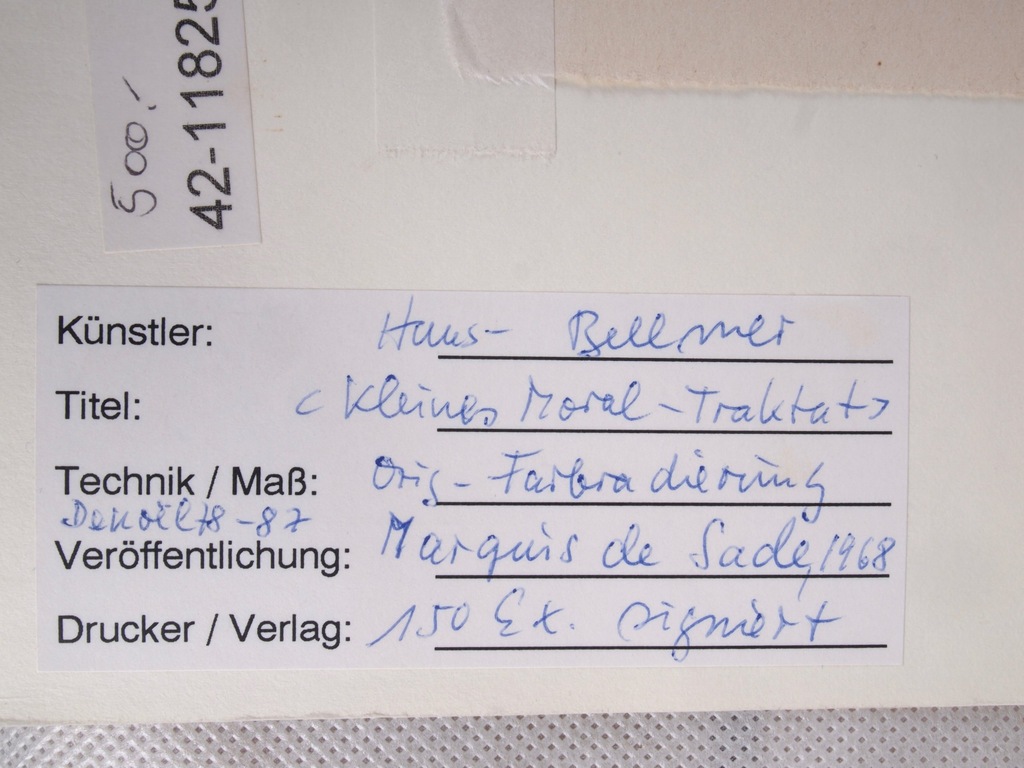 500.-
42-1182
Künstler: Hans- Bellmer
Titel: <Kleines Moral-Traktat>
Technik / Maß: Orig-Farbradierung
Denoël 78-87
Veröffentlichung: Marquis de Sade, 1968
Drucker / Verlag: 150 Ex. signiert